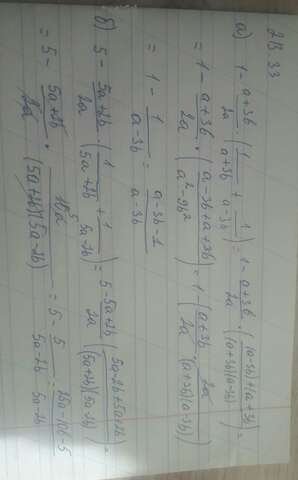 213 33
а) 1 - (a+3b)/2a · (1/(a+3b) + 1/(a-3b)) = 1 - (a+3b)/2a · ((a-3b)+(a+3b))/((a+3b)(a-3b)) =
= 1 - (a+3b)/2a · ((a-3b+a+3b)/(a²-9b²)) = 1 - (a+3b)/2a · 2a/((a+3b)(a-3b))
= 1 - 1/(a-3b) = (a-3b-1)/(a-3b)
б) 5 - (5a+2b)/2a (1/(5a+2b) + 1/(5a-2b)) = 5 - (5a+2b)/2a ((5a-2b+5a+2b)/((5a+2b)(5a-2b))) =
= 5 - (5a+2b)/2a · 10a/((5a+2b)(5a-2b)) = 5 - 5/(5a-2b) = (25a-10b-5)/(5a-2b)